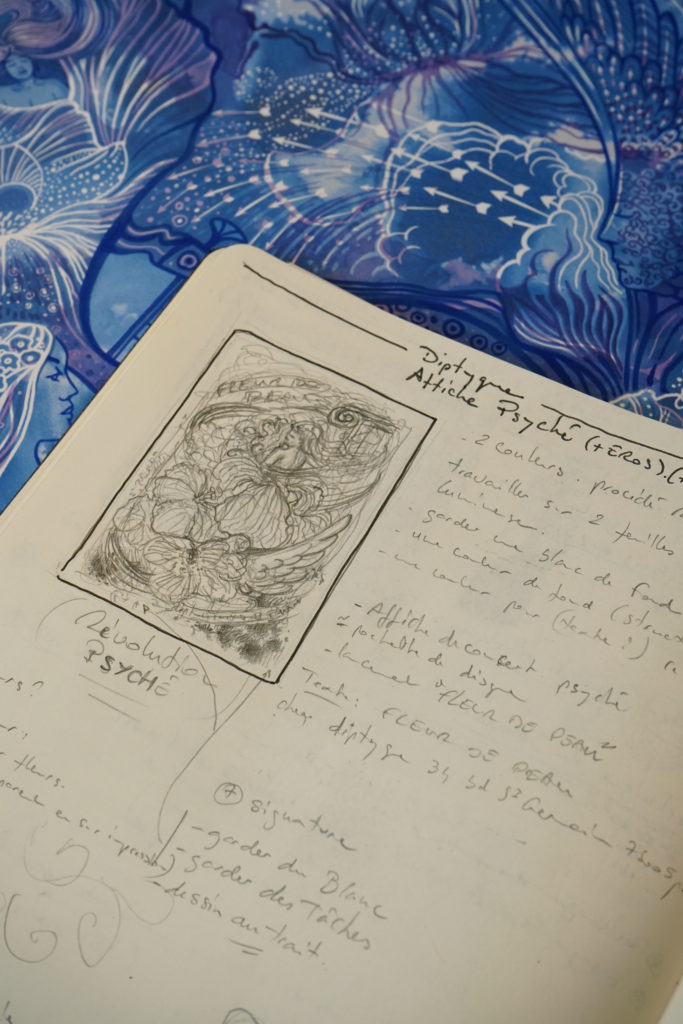 Diptyque
Affiche Psyché (+EROS).
FLEUR DE
PEAU
- 2 couleurs . procédé
travailler sur 2 feuilles
lumineuse.
- garder un blanc de fond
- une couleur de fond
- une couleur pour (texte?)
- Affiche de concert psyché
= pochette de disque
- lancement "FLEUR DE PEAU"
Texte : FLEUR DE PEAU
chez diptyque 34 bd St Germain
Révolution
PSYCHÉ
fleurs.
+ signature
- garder du Blanc
- garder des Tâches
- dessin au trait.